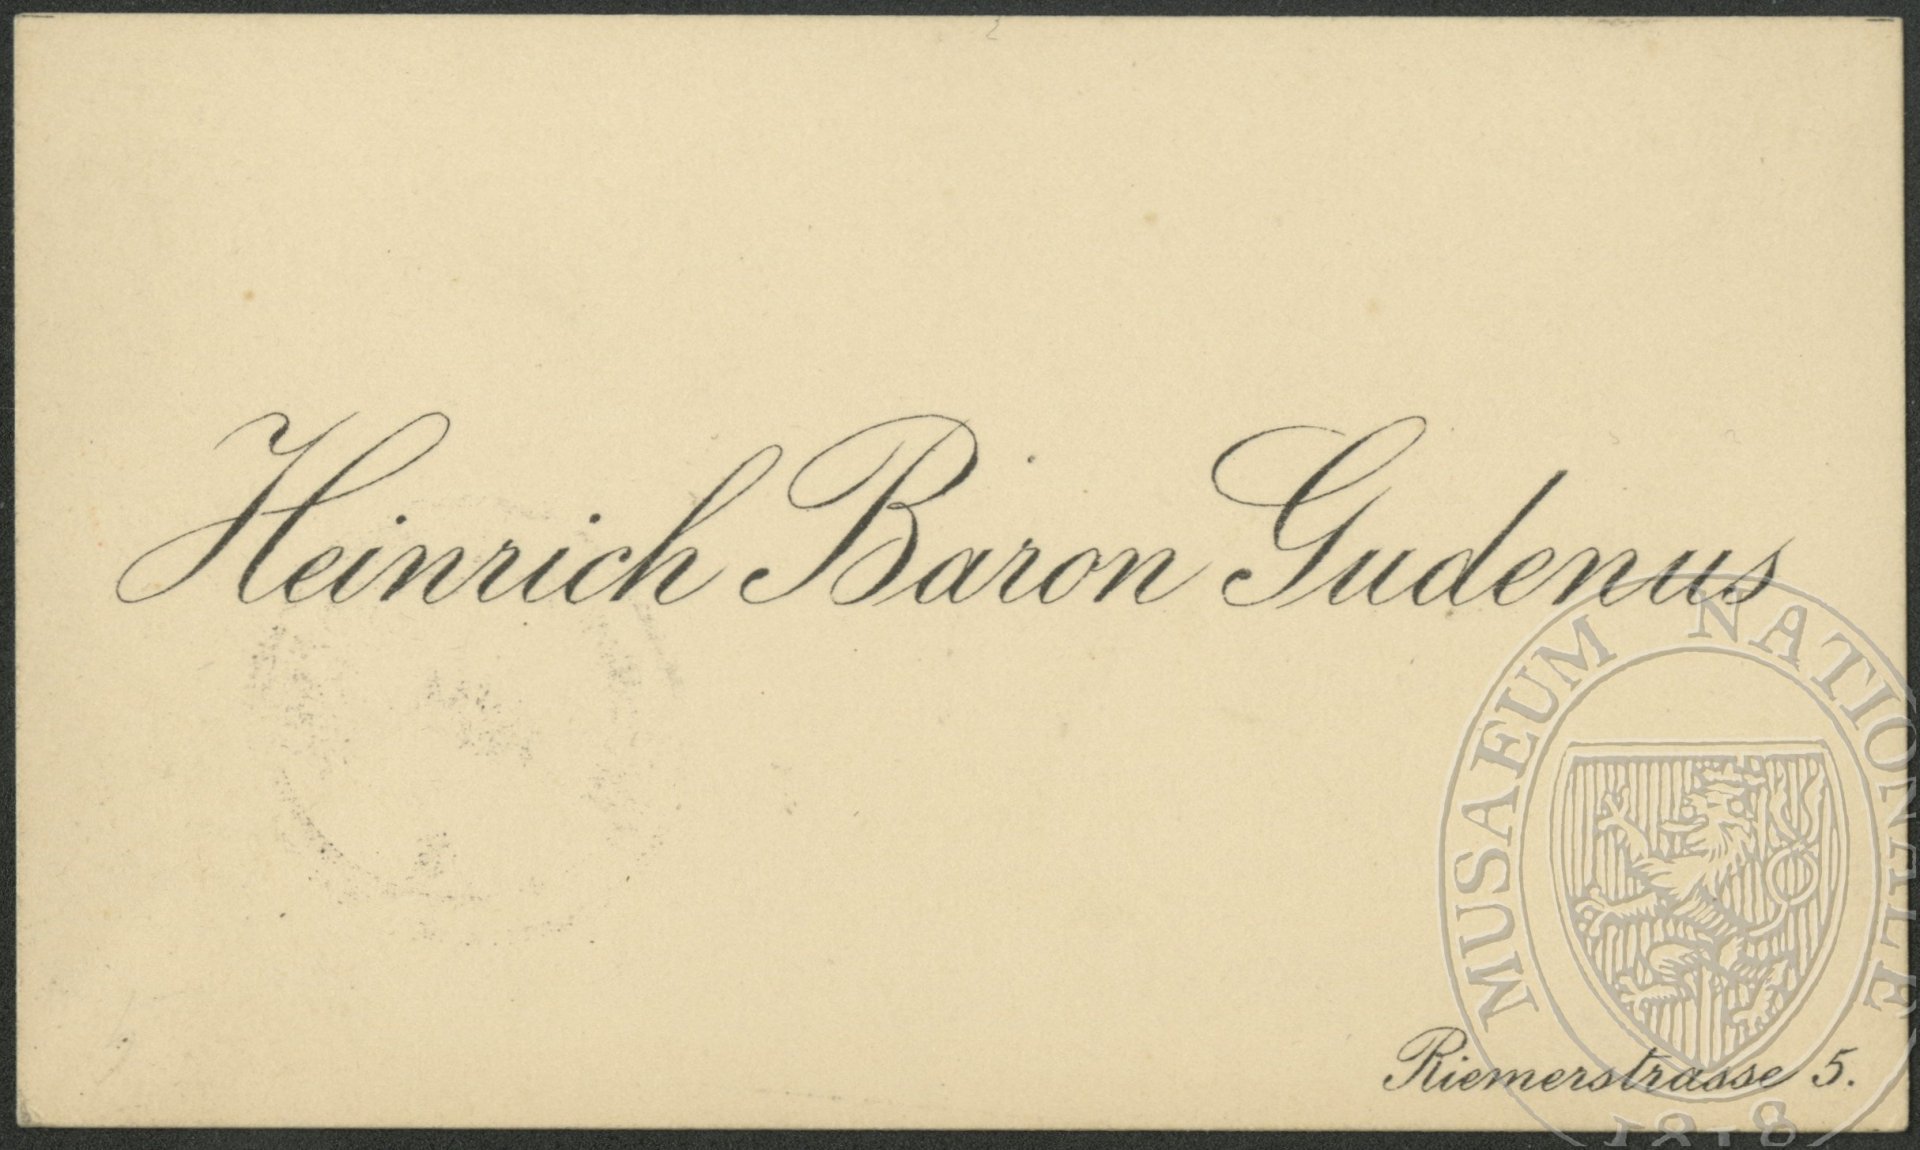 Heinrich Baron Gudenus
MUSAEUM NATIONALE
Riemerstrasse 5.
1818